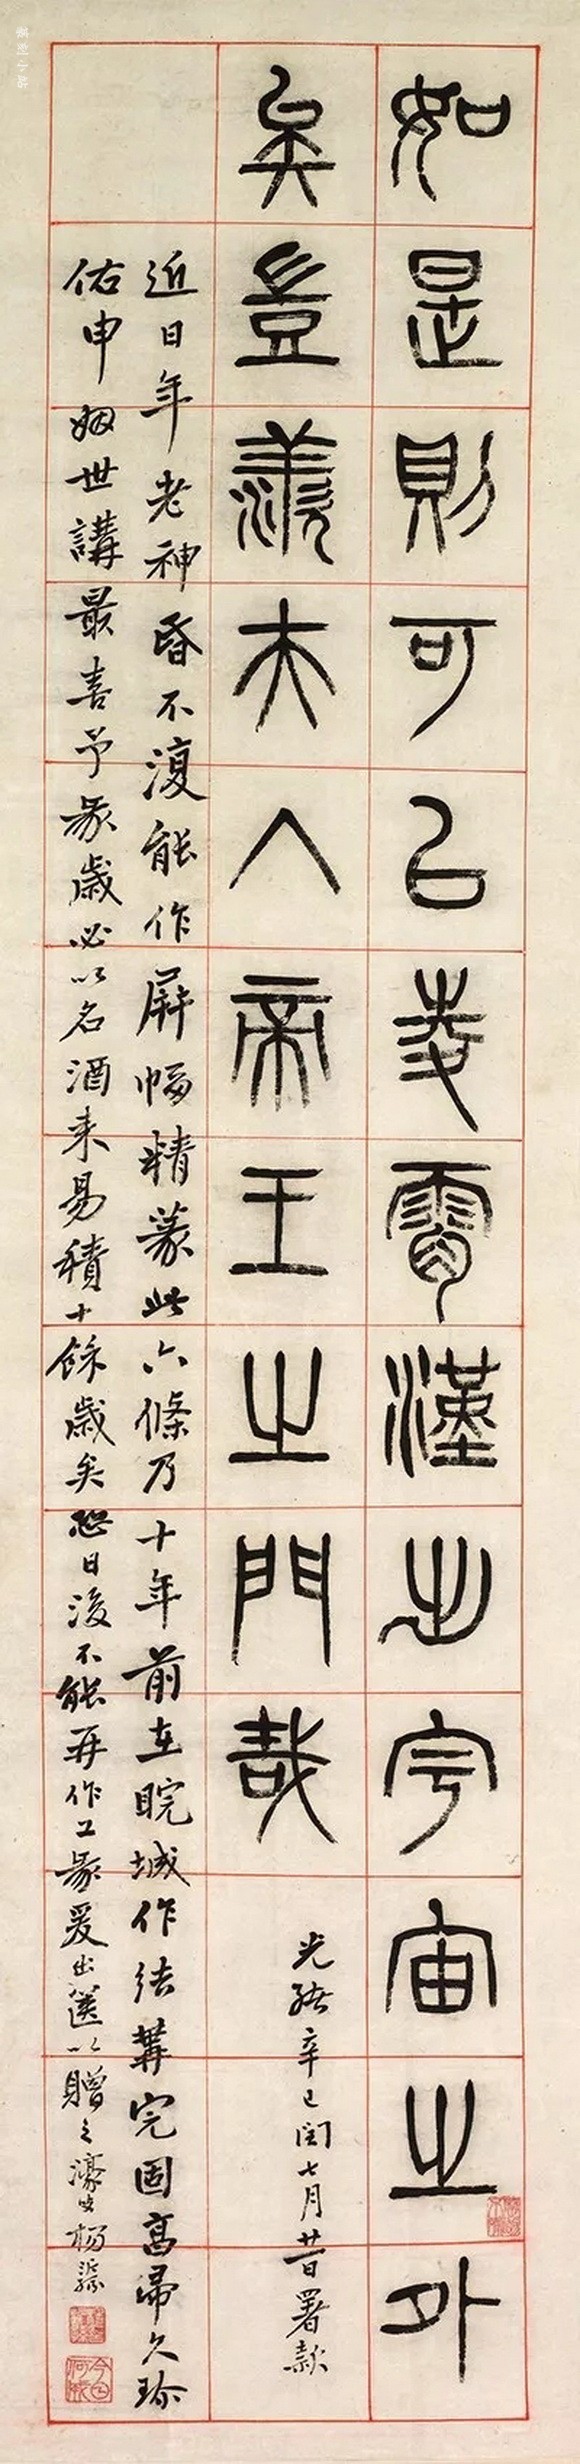 如是則可以凌霄漢出宇宙之外
矣豈羨夫入帝王之門哉
光緒辛巳閏七月廿日署款
近日年老神昏不復能作屏幅精篆此六條乃十年前在皖城作結構完固高帚久珍
佑申姻世講最喜予篆歲必以名酒來易積十餘歲矣恐日後不能再作工篆爰出篋以贈之濠叟楊沂孫